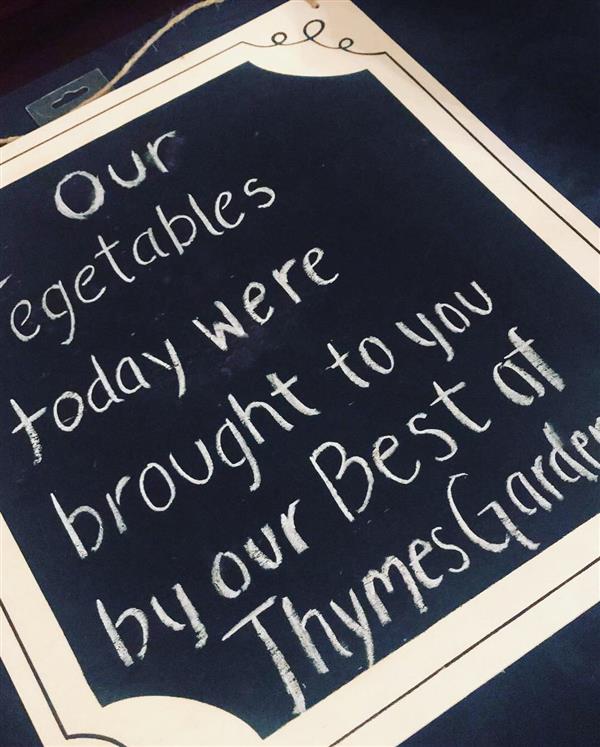 Our
Vegetables
today were
brought to you
by our Best of
Thymes Garden